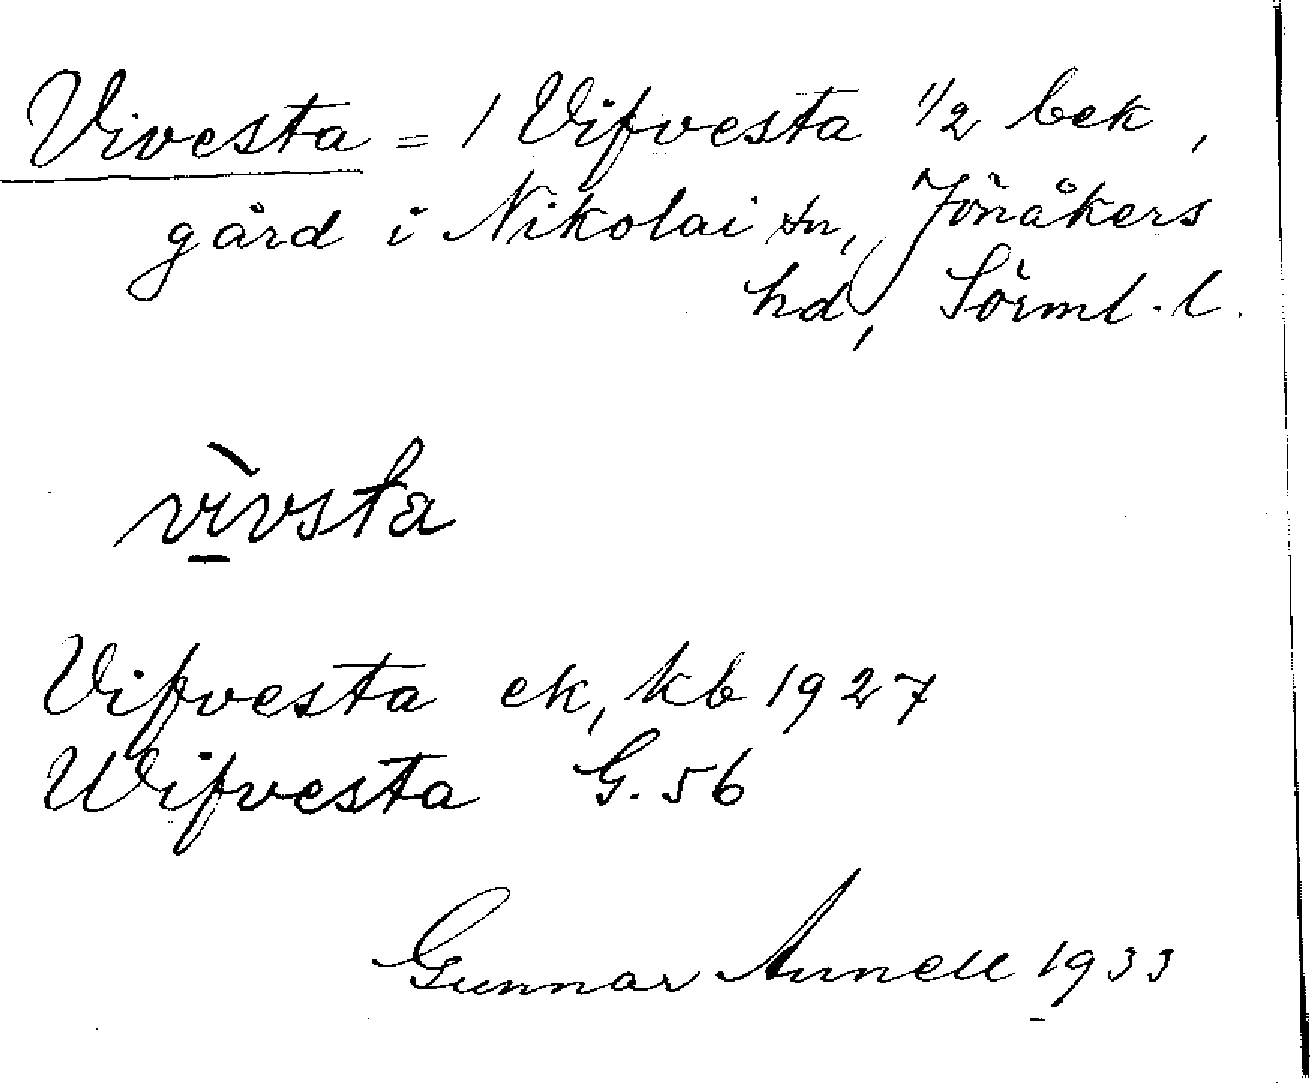 Vivesta = 1 Vifvesta 1/2 bek,
gård i Nikolai sn, Jönåkers
hd, Sörml. l.
vìvsta
Vifvesta ek, kb 1927
Wifvesta G. 56
Gunnar Annell 1933